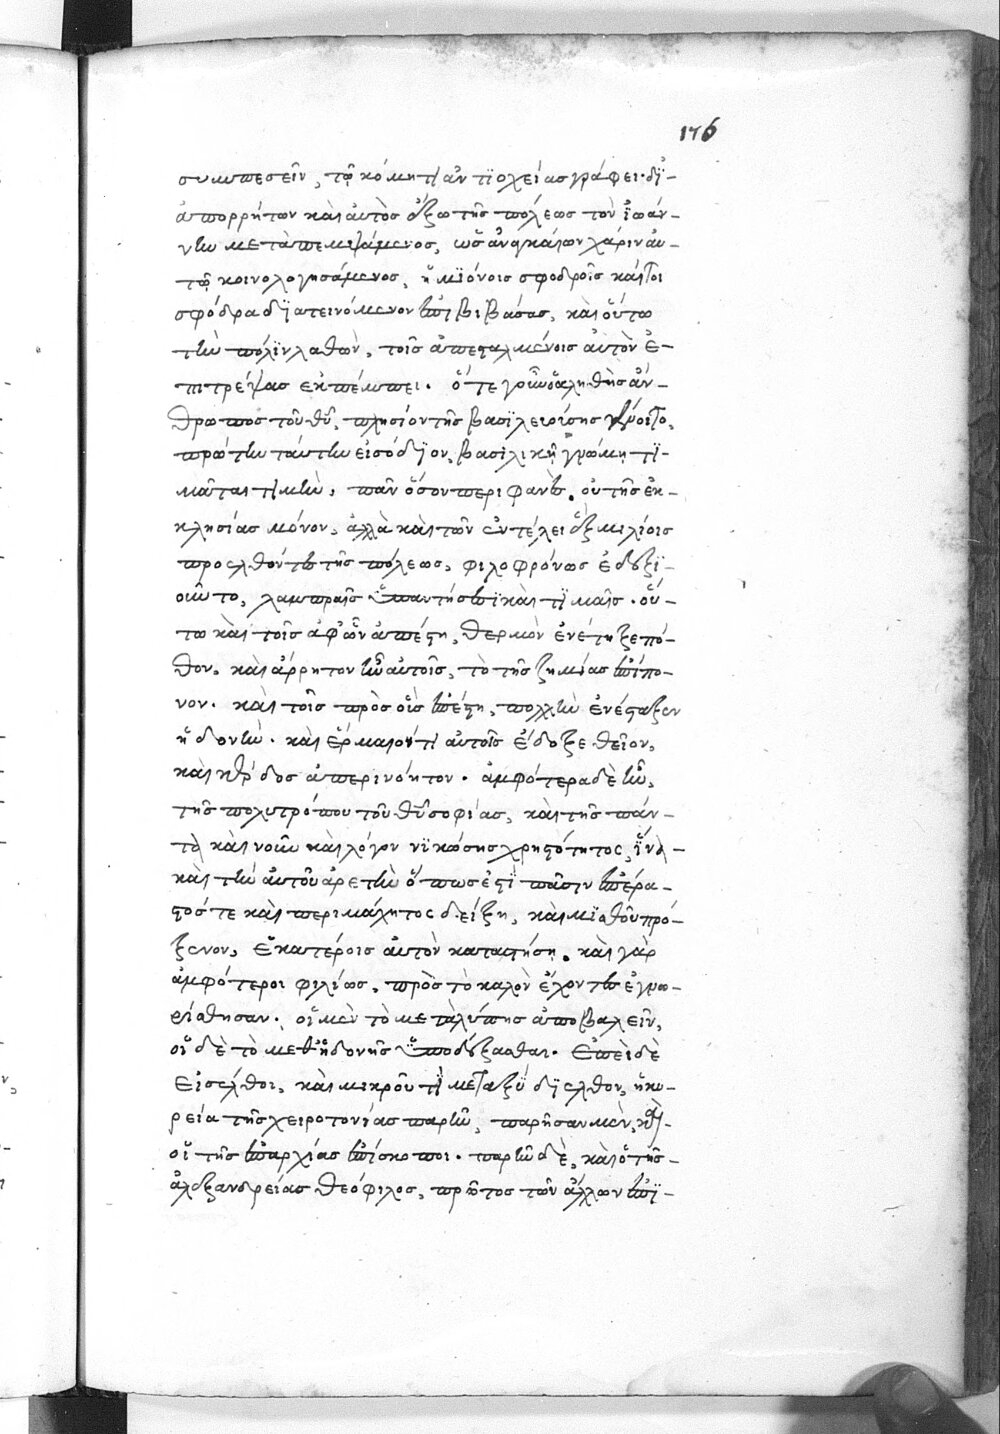 176
συμπεσεῖν, τῷ κόμητι ἀντιοχείας γράφει· δι᾽
ἀπορρήτων καὶ αὐτὸς ἔξω τῆς πόλεως τὸν ἰωάν-
νην μεταπεμψάμενος, ὡς ἀναγκαίων χάριν αὐ-
τῷ κοινολογησάμενος, ἡμιόνοις σφοδροῖς καίτοι
σφόδρα διατεινόμενον ἐπιβιβάσας, καὶ οὕτω
τὴν πόλιν λαθὼν, τοῖς ἀπεσταλμένοις αὐτὸν ἐ-
πιτρέψας ἐκπέμπει. ὅτε γοῦν ὁ ἀληθὴς ἄν-
θρωπος τοῦ θῦ, πλησίον τῆς βασιλευούσης γένοιτο,
πρώτην ταύτην εἰσόδιον, βασιλικῇ γνώμῃ τι-
μᾶται τιμὴν, πᾶν ὅσον περιφανὲς. οὐ τῆς ἐκ-
κλησίας μόνον, ἀλλὰ καὶ τῶν ἐν τέλει ἓξ μιλίοις
προελθόντες τῆς πόλεως, φιλοφρόνως ἐδεξι-
οῦντο, λαμπραῖς ὑπαντήσεσι καὶ τιμαῖς. οὕ-
τω καὶ τοῖς ἀφ᾽ ὧν ἀπέστη, θερμὸν ἐνέτηξε πό-
θον, καὶ ἄρρητον ἦν αὐτοῖς, τὸ τῆς ζημίας ἐπίπο-
νον. καὶ τοῖς πρὸς οἷς ἐπέστη, πολλὴν ἐνέσταξεν
ἡδονὴν. καὶ ἕρμαιόν τι αὐτοῖς ἔδοξε θεῖον,
καὶ κέρδος ἀπερινόητον. ἀμφότερα δὲ ἦν,
τῆς πολυτρόπου τοῦ θῦ σοφίας, καὶ τῆς πάν-
τα καὶ νοῦν καὶ λόγον νικώσης χρηστότητος, ἵνα
καὶ τὴν αὐτοῦ ἀρετὴν ὅπως ἐστὶ πᾶσιν ἐπέρα-
στός τε καὶ περιμάχητος δείξῃ, καὶ μισθοῦ πρό-
ξενον, ἑκατέροις αὐτὸν καταστήσῃ. καὶ γὰρ
ἀμφότεροι φιλίως, πρὸς τὸ καλὸν ἔχοντες ἐγνω-
ρίσθησαν. οἱ μὲν τὸ μετὰ λύπης ἀποβαλεῖν,
οἱ δὲ τὸ μεθ᾽ ἡδονῆς ὑποδέξασθαι. ἐπεὶ δὲ
εἰσέλθοι, καὶ μικροῦ τι μεταξὺ διελθον, ἡ κυ-
ρεία τῆς χειροτονίας παρῆν, παρῆσαν μὲν, καὶ
οἱ τῆς ἐπαρχίας ἐπίσκοποι. παρῆν δὲ, καὶ ὁ τῆς
ἀλεξανδρείας θεόφιλος, πρῶτος τῶν ἄλλων ἐπι-